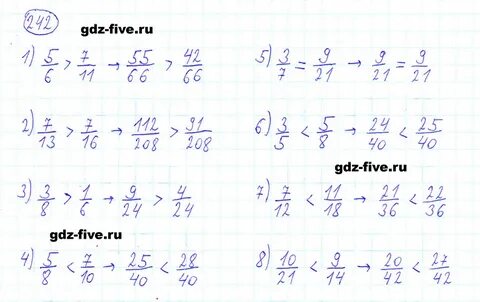 242
gdz-five.ru
gdz-five.ru
1) 5/6 > 7/11 → 55/66 > 42/66
5) 3/7 = 9/21 → 9/21 = 9/21
2) 7/13 > 7/16 → 112/208 > 91/208
6) 3/5 < 5/8 → 24/40 < 25/40
gdz-five.ru
3) 3/8 > 1/6 → 9/24 > 4/24
7) 7/12 < 11/18 → 21/36 < 22/36
gdz-five.ru
4) 5/8 < 7/10 → 25/40 < 28/40
8) 10/21 < 9/14 → 20/42 < 27/42